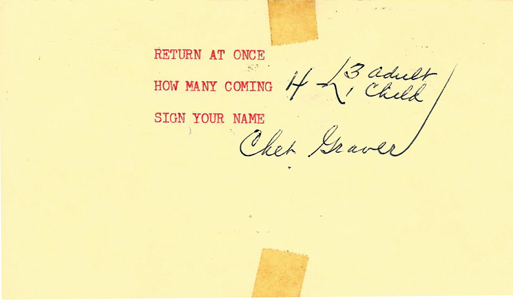 RETURN AT ONCE
HOW MANY COMING 4 < 3 adult
1 Child
SIGN YOUR NAME
Chet Graver